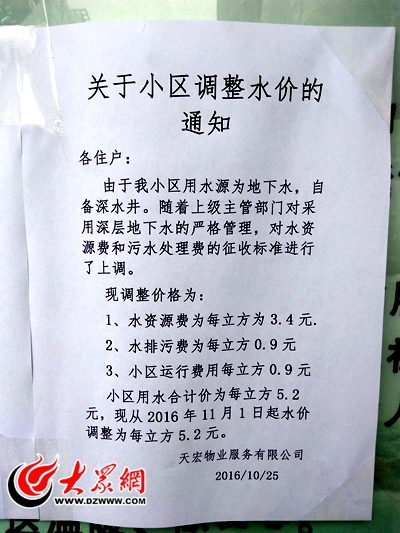 关于小区调整水价的
通知
各住户：
由于我小区用水源为地下水，自
备深水井。随着上级主管部门对采
用深层地下水的严格管理，对水资
源费和污水处理费的征收标准进行
了上调。
现调整价格为：
1、水资源费为每立方为3.4元.
2、水排污费为每立方0.9元
3、小区运行费用每立方0.9元
小区用水合计价为每立方5.2
元，现从2016年11月1日起水价
调整为每立方5.2元。
天宏物业服务有限公司
2016/10/25
大眾網
WWW.DZWWW.COM